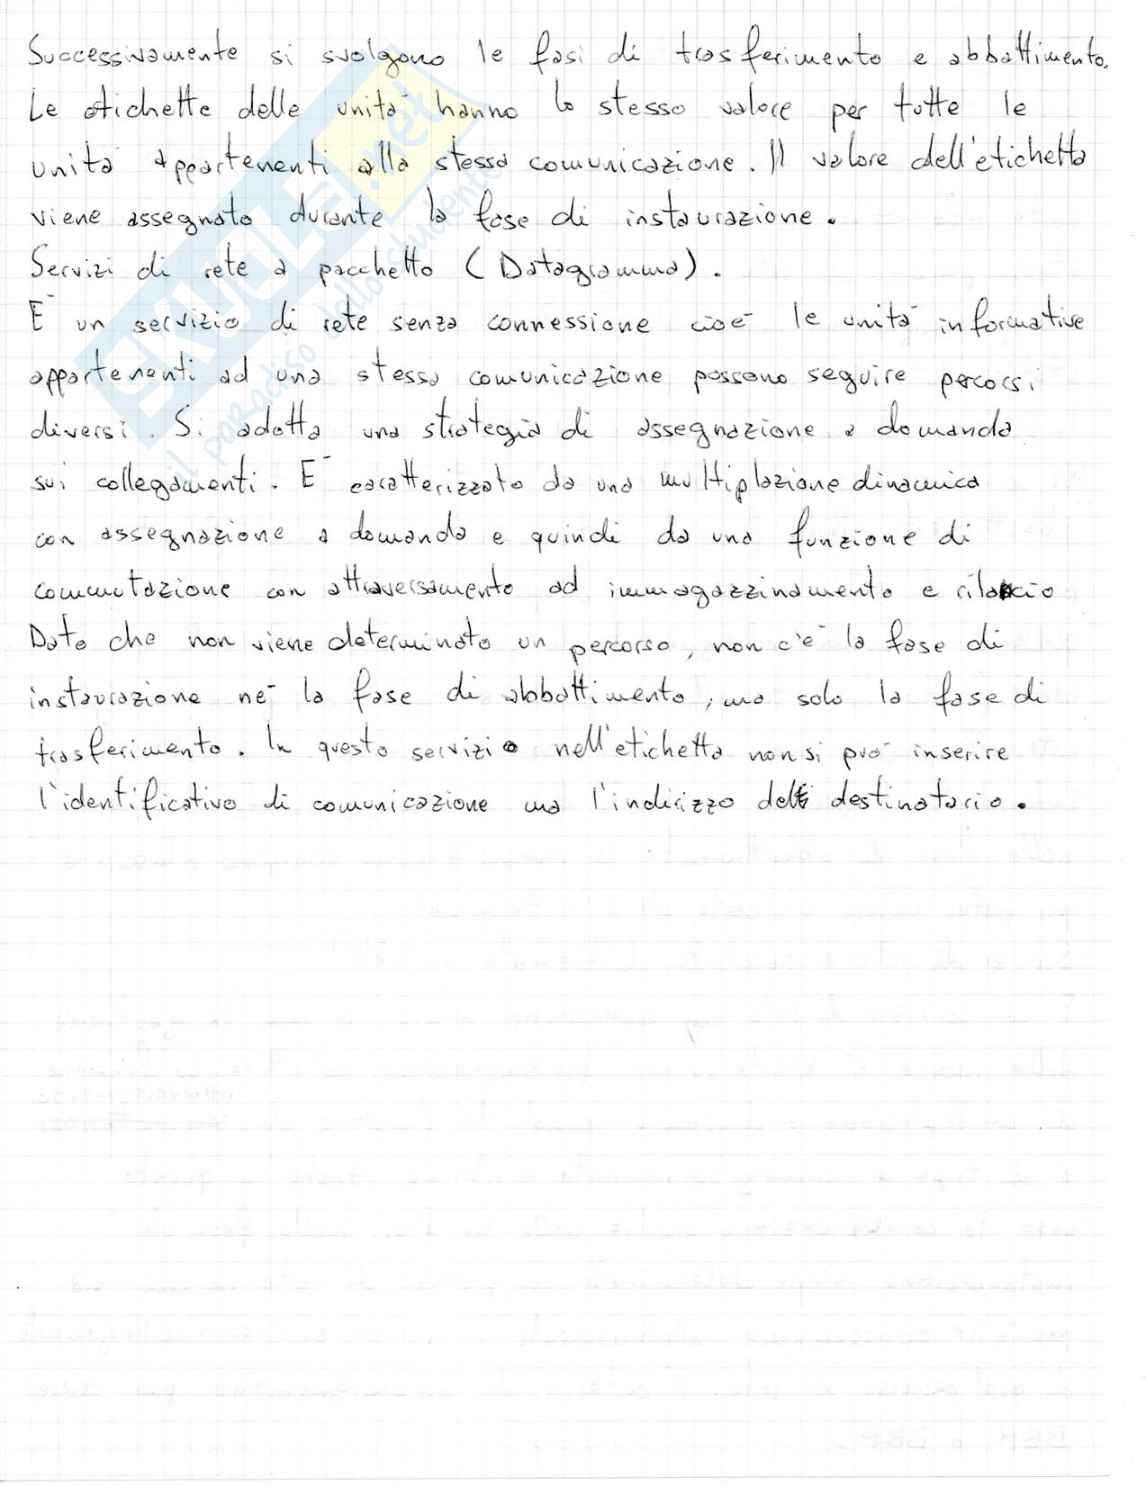 Successivamente si svolgono le fasi di trasferimento e abbattimento.
Le etichette delle unità hanno lo stesso valore per tutte le
unità appartenenti alla stessa comunicazione. Il valore dell'etichetta
viene assegnato durante la fase di instaurazione.
Servizi di rete a pacchetto (Datagramma).
È un servizio di rete senza connessione cioè le unità informative
appartenenti ad una stessa comunicazione possono seguire percorsi
diversi. Si adotta una strategia di assegnazione a domanda
sui collegamenti. È caratterizzato da una multiplazione dinamica
con assegnazione a domanda e quindi da una funzione di
commutazione con attraversamento ad immagazzinamento e rilascio
Dato che non viene determinato un percorso, non c'è la fase di
instaurazione nè la fase di abbattimento, ma solo la fase di
trasferimento. In questo servizio nell'etichetta non si può inserire
l'identificativo di comunicazione ma l'indirizzo del destinatario.
SKUOLA.net
il paradiso dello studente